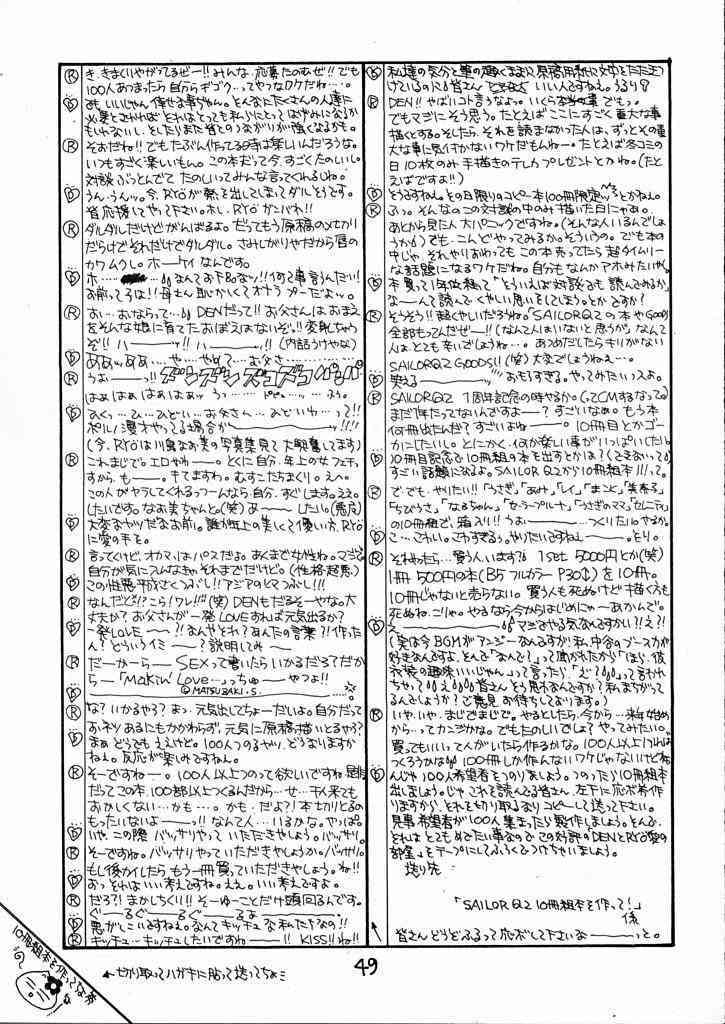 Ⓡ 私達の気分と筆の趣くままに原稿用紙に
けているのに皆さん いいんですねぇ。うるり♡
DEN!! ヤバいコト言うなよっ。いくら でもっ。
でもマジにそう思う。たとえばここにすごく重大な事
描くとする。そしたら、それを読まなかった人は、ずっとその重
大な事に気付かないワケだもんねー。たとえば冬コミの
日10枚のみ手描きのテレカプレゼントとかね。(たと
えばですよ!!)
Ⓓ そうですねぇ。その日限りのコピー本100冊限定ッとかねぇ。
Ⓡ ふっ。そんなのこの対談の中のみ描いた日にゃあ。
あとから見た人大パニックですね。(そんな人いるんでしょ
うかぁ)でも、こんどやってみるか。そういうの。でも本の
中じゃ それやりおわっても この本売ってたら超タイムリー
な話題になるワケだね。自分もなんかアホみたいやん。
Ⓓ 本買って1年位経って「そういえば対談でも読んでみるか。
なーんて読んで くやしい思いをしてしまう。とかですか!
Ⓡ そうそう!! 超くやしいだろね。「SAILORQ2の本やGoods
全部もってんだぜー!!(なんて人はいないと思うが)なんて
人は、とても辛いでしょうねー。あつめだしたらキリがない
SAILORQ2 GOODS!!(笑)大変でしょうねぇ…。
Ⓓ 笑える おもしろすぎる。やってみたいっスよ。
Ⓡ SAILORQ2 1周年記念の時やるか。G2CMするなって。
まだ1年たってないんですよー? すごいなぁ。もう本
何冊出たんだ? すごいよねー。10冊目とかゴー
カにしたいし。とにかく、何か楽しい事がいっぱいしたい。
Ⓓ 10冊目記念で10冊組の本を出すとかは?(できないって。)
すごい話題になるよ。SAILOR Q2から10冊組本!!!って。
Ⓡ で・でも、やりたい!!「うさぎ」「あみ」「レイ」「まこと」「美奈子」
「ちびうさ」「なるちゃん」「セーラープルート」「うさぎのママ」「セレニティ」
の10冊組で、箱入り!! うおー つくりたい。やるか。
Ⓓ こ…こわい。こわすぎるっ。やりたいですねぇ とり。
Ⓡ それやったら…買う人います? 1set 5000円とか(笑)
1冊 500円の本(B5 フルカラー P30)を10冊。
10冊じゃないと売らない。買う人も死ぬけど描くうも
死ぬね。こりゃ。やるなら今からはじめにゃーあかんで。
Ⓓ え マジでやる気なんですかい?!え?!
(実は今BGMがアンジーなんですが、私、中谷のブースカが
好きなんですよ。そんで「なんで?」って聞かれたから「ほら、彼
衣装の趣味いいじゃん」って言ったら、「え?」って言われ
ちゃって 皆さんどう思われますか? 私まちがって
るんでしょうか? ご意見お待ちしております)
Ⓡ いや、いや、まじでまじで。やるといたら、今から…来年始め
から…ってカンジかな。でもたのしいでしょ? やってみたい。
買ってもいいって人がいたら作るかな。100人以上いれば
つくろうかな! 100冊しか作んないワケじゃないけどね
Ⓓ んじゃ100人希望者をつのりましょう。つのったら10冊組本
出しましょう。じゃ これを読んでる皆さん。左下に応募希
りますから、それを切り取るなりコピーして送って下さい。
見事希望者が100人集まったら製作しましょう。そんで、
それは とてもめでたい事なので この対評の「DENとRYO愛の
部屋」をテープにしてふろくでつけちゃいましょう。
送り先
「SAILOR Q2 10冊組本を作って!」
係
皆さん どうどふるって応募して下さいなーっと。
Ⓡ き、きまくいやがってるぜー!! みんな、応募たのむぜ!! でも
100人あつまったら自分らギゴク…ってやつなワケだね…。
Ⓓ ぉぃ いいじゃん。幸せな事ぢゃん。とんなにたくさんの人達に
必要とされれば それはとっても私らにとってはげみになるか
もしれないし。そしたらまた皆とのつながりがが強くなるかも。
Ⓡ そおだね!! でもたぶん作ってる時は楽しいんだろうな。
いつもすごく楽しいもん。この本だって今、すごくたのしいし。
対談ぶっとんでて たのしいってみんな言ってくれるしね。
Ⓓ うん、うんッ。今、RYOが熱を出してしまってダルそうです。
皆応援してやって下さい。ホレ、RYOガンバれ!!
Ⓡ ダルダルだけどがんばるよ。だってもう原稿のメ切り
だらけでそれだけでダルダル。さみしがりやだから唇の
カワムクし。ホーケイなんです。
Ⓓ ホ… なんてお下品なッ!! 何て事言うんだい!
お前ってコは!! 母さん恥かしくてオナラプーだよッ。
Ⓡ お…おならって… DENだって!! お父さんは、おまえ
をそんな娘に育てたおぼえはないぞっ!! 変身しちゃう
ぞ!! ハーッ!! ハーッ!!(内話うけやな)
Ⓓ あぁッ あぁ…や…やめて…お父さ
Ⓡ うおーッ!! ズンズンズコズコパンパン
はぁはぁ はぁはぁっ うっ… ドピュ…ふう。
Ⓓ ひくっ…ひ…ひどい…お父さん…ひどいわ って!!
ポルノ漫才やってる場合か !!
(今、RYOは川奥なお美の写真集見て大興奮してます)
Ⓡ これまじで。エロやわー。とくに自分、年上の女フェチ。
すから、もー。キてますわ。むすこたちまくり。えへ。
この人がヤラしてくれるっつーんなら、自分、すぐします。ええ。
したいです。なお美ちゃんと。(笑)あーしたい。(悪)
Ⓓ 大変なやつだなお前。誰か年上の美しくて優しい方、RYO
に愛の手を。
Ⓡ 言ってくけど、オカマ、はパスだよっ。あくまで女性ね。マジで。
自分が気にスんなきゃそれまでだけど。(性格超悪)
Ⓓ この性悪平成ざくつぶし!! アジアのとつぶし!!!
Ⓡ なんだとぉ?! こら! ワレ!!(笑)DENもだるそーやな。大
丈夫か? お父さんが一発LOVEすれば元気出るか?
Ⓓ 一発LOVE ー?!! なんやそれ? あんたの言葉?! 作った
ん? どういうイミー? 説明してみー
Ⓡ だーかーらー SEXって書いたらいかるだろ? だか
らー「Makin' Love…っちゅーやつよ!!
©MATSUZAKI.S.
Ⓡ な? いかるやろ? まっ、元気出してちょーだいよ。自分だって
お熱あるにもかかわらず、元気に原稿描いとるやろ?
Ⓓ まあ どうでもええけど。100人つのるやん、どうなりますか
ねえ。反応が楽しみですねえ。
Ⓡ そーですねー。100人以上つのって欲しいですね。最悪
だってこの本、100部以上つくるんだから…せ…千人来ても
おかしくない…かも…。かも…だよ? 本切りとるの
もったいないよー!! なんて人…いるかな。やっぱ。
Ⓓ いや、この際バッサリやって いただきやしょう。バッサリ。
Ⓡ そーですね。バッサリやっていただきやしょうか。バッサリ。
もし後かイしたら もう一冊買っていただきやしょう。ね!!
Ⓓ おっ それはいい考えですね。ええ。いい考えですよ。
Ⓡ だろ?! まかしちくり!! そーゆーことだけ頭回るんです。
ぐーるぐーるぐーるよー
Ⓓ 悪がしこいですねぇ。なんてキッチュな私たちなの!!
Ⓡ キッチュ…キッチュしたいですねー !! KISS!! ね!!
10冊組本を作ってな券
←せかり取ってハガキに貼って送ってちょ
49